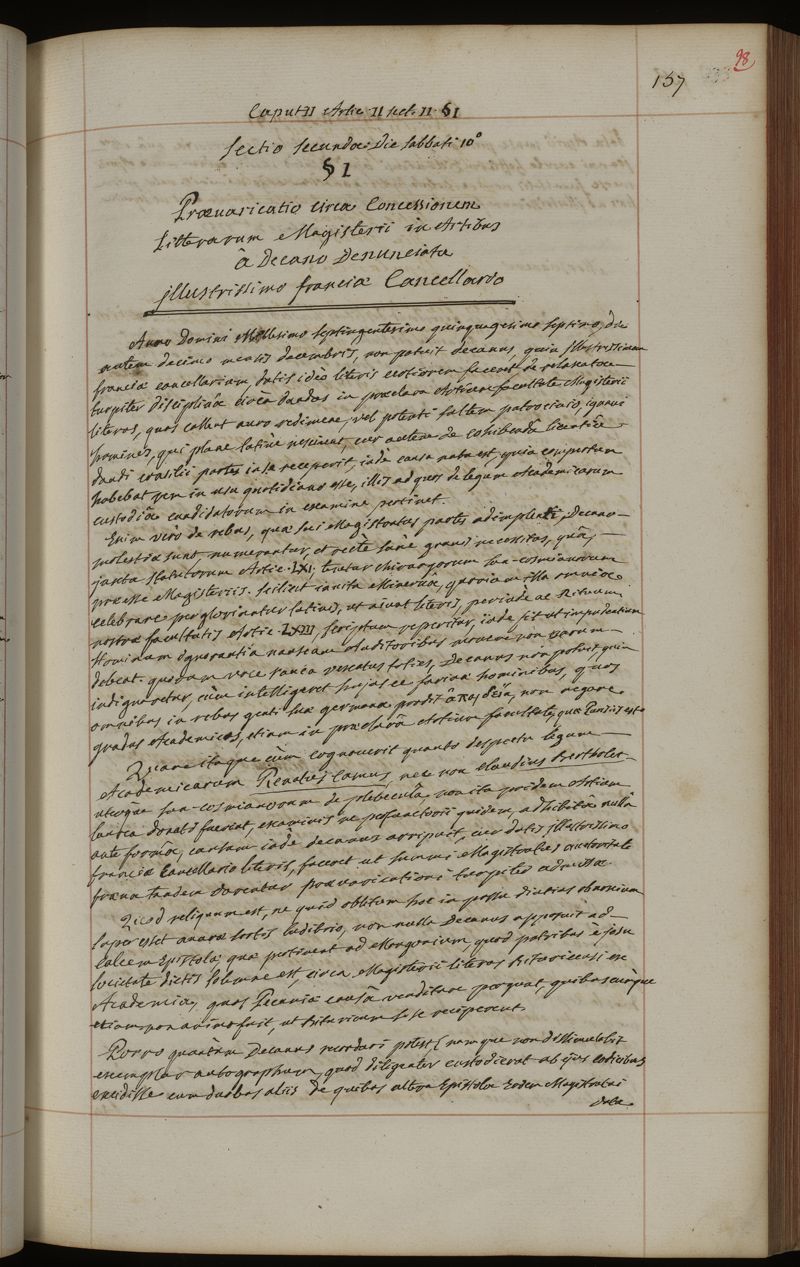 98
157
Caput II Artic. II sect. II. §I
Sectio Secunda. Die Sabbati 10°
§ I
Prævaricatio circa Concessionem
Litterarum Magisterii in Artibus
â Decano Denunciata
illustrissimo franciæ Cancellario
Anno Domini Millesimo septingentesimo quinquagesimo septimo, die
autem decimo mensis decembris, non potuit decanus, quin illustrissimum
franciæ cancellarium, datis ideò literis certiorem faceret de relaxata
turpiter disciplinâ circa dandas in præclara Artium facultate Magisterii
literas, quas callent auro redimere, vel potenti saltem patrocinio, ignavi
homines, qui plane latinè nesciunt, cur autem de cohibendâ licentiâ
dandi consilii partes in se receperit, indè causa nata est, quia compertum
habebat rem in usu quotidiano esse, illis ad quos de legum Academicarum
custodiâ candidatorum in examine pertinet.
Enim vero de rebus, quæ sui Magistratus partes adimplenti, Decano
molestiæ sunt, numerantur, et rectè sanè gravis necessitas, quâ,
juxta statutorum Artic. LXI, tenetur chirurgorum san-cosmianorum
præesse Magisteriis. Scilicet invita Minerva, quoniam illa omnia
celebrare per gloriantur latinis, ut aiunt literis, perinde ac Rituum
nostræ facultatis Artic. LXIII, scriptum reperitur, inde fit ut imprudentium
Hominum ignorantia nauseam Auditoribus movere non parum
debeat. quodam voce rauca vescatus toties, Decanus non potuit, quin
indignaretur, cùm intelligeret hujusce farinæ hominibus, quos
omnibus in rebus genti suæ germana prodit ἀπαιδεία, non negare
gradus Academicos, etiam in præclarâ Artium facultate, quæ Parisiis est
Quare itaque cùm cognoverit quanto despectu legum
Academicarum Renatus Camus, nec non Claudius Bertholet
uterque san-cosmianorum de plebeculâ, non ita pridem Artium
laurea donati fuerint, examinis ne perfunctorii quidem, adhibitâ nullâ
ante formâ, causam indè decanus arripuit, cur datis illustrissimo
franciæ Cancellario literis, faceret ut summi Magistratus autoritate
fræna tandem darentur prævaricationi turpiter admissæ.
Quod reliquum est, ne quid oblitum hoc in posse
super esset avaræ sortis ludibrio, non nulla Decanus apposuit ad
calcem Epistolæ quæ pertinent ad Mangonium, quod patribus è jesu
societate dictis solemne est, circa Magisterii literas Bituricensi ex
Academia, quas Pecuniæ causâ venditare pergunt, quibuscumque
etiam non animo fuit, ut Bituricum se se reciperent.
Porro quantum Decanus recordari potest (namque non dissimulabit
exemplar autographum, quod diligenter custodierat ab ejus codicibus
excidisse cum duobus aliis de quibus altera Epistola Eidem Magistratui
data